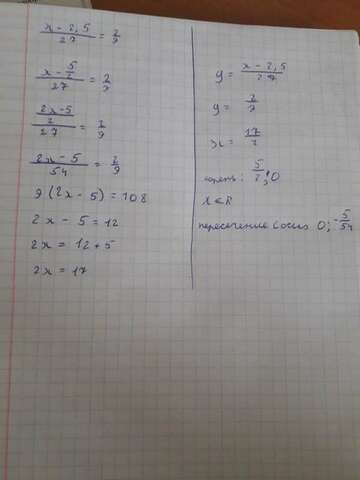 x-2,5/27 = 2/9
x-5/2/27 = 2/9
2x-5/2/27 = 2/9
2x-5/54 = 2/9
9(2x-5)=108
2x-5=12
2x=12+5
2x=17
y = x-2,5/27
y = 2/9
x = 17/2
корень: 5/2;0
x∈R
пересечение с осью 0; -5/54